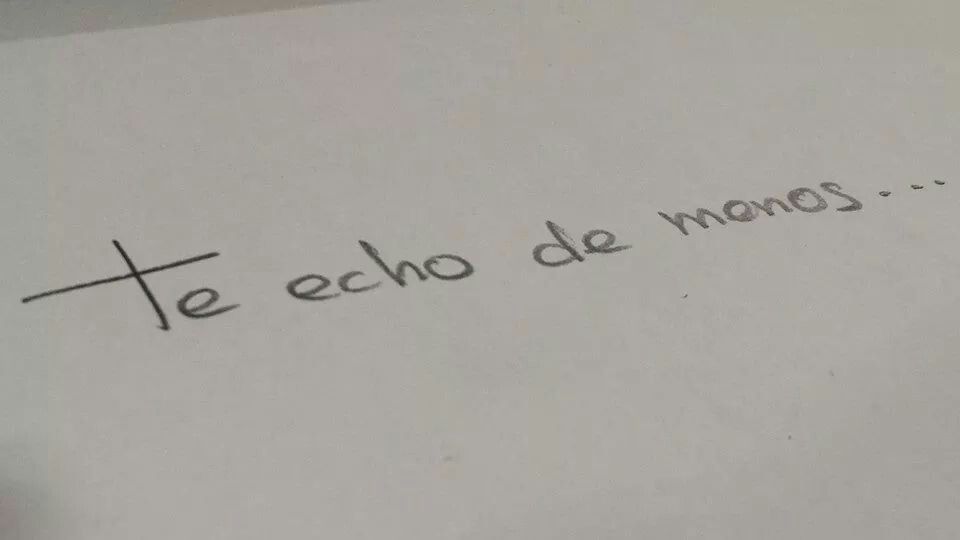 te echo de menos....